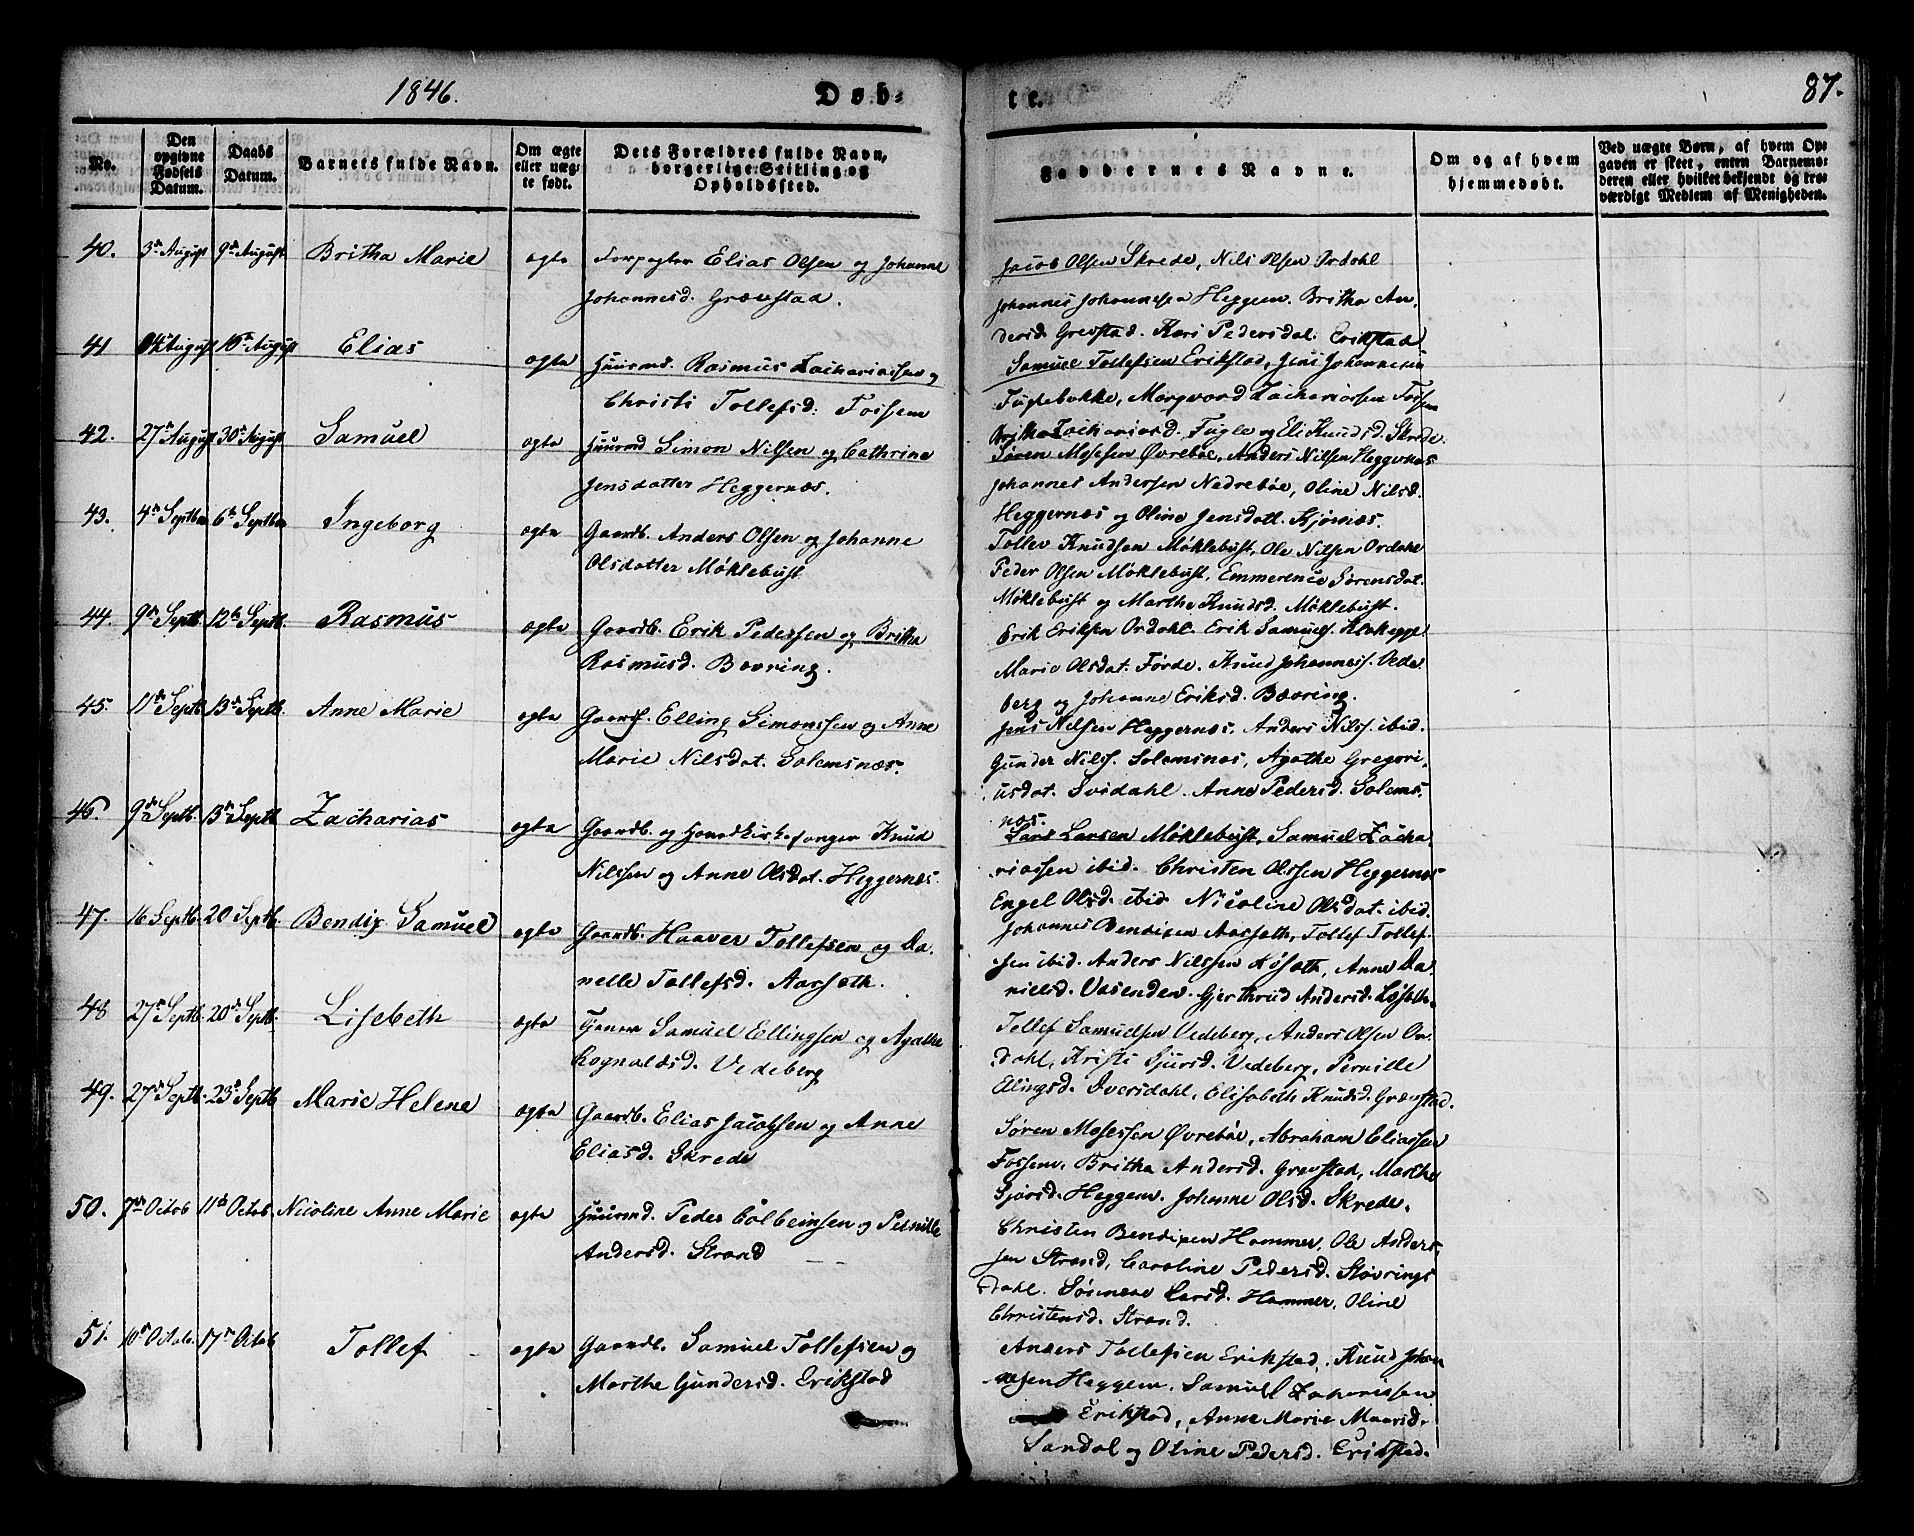 1846.
Døb-
te.
87.
No.
Den opgivne Fødsels Datum.
Daabs Datum.
Barnets fulde Navn.
Om ægte eller uægte født.
Dets Forældres fulde Navn, borgerlige Stilling og Opholdssted.
Faddernes Navne.
Om og af hvem hjemmedøbt.
Ved uægte Børn, af hvem Opgaven er skeet, enten Barnemoderen eller hvilket bekjendt og troværdigt Medlem af Menigheden.
40. 3die August 9de August Britha Marie ægte Forpagter Elias Olsen og Johanne
Johannesd. Grævstad.
Jacob Olsen Skrede, Nils Olsen Ordahl
Johannes Johannesen Heggem. Britha An-
dersd. Grevstad. Kari Pedersdat. Erikstad
41 August 16de August Elias ægte Huusmd. Rasmus Zachariassen og
Christi Tollefsd: Fossem
Samuel Tollefsen Erikstad, Jens Johannesen
Fuglebakke, Zachariassen Fossem
Britha Zachariasd. Fugle og Eli Knudsd. Skrede.
42. 27de August 30te August Samuel ægte Huusmd Simon Nilsen og Cathrine
Jensdatter Heggernæs.
Søren Mosesen Øvrebøe, Anders Nilsen Heggernæs
Johannes Andersen Nedrebøe, Oline Nilsd.
Heggernæs og Oline Jensdatt. Kjørnæs.
43. 4de Septbr 6te Septbr Ingeborg ægte Gaardb. Anders Olsen og Johanne
Olsdatter Møklebust
Tollev Knudsen Møklebust, Ole Nilsen Ordahl
Peder Olsen Møklebust, Emmerence Sørensdat.
Møklebust og Marthe Knudsd. Møklebust.
44. 9de Septb. 12te Septb. Rasmus ægte Gaardb. Erik Pedersen og Britha
Rasmusd. Bævring.
Erik Eriksen Ordahl. Erik Samuels. Klakegge
Marie Olsdat. Førde. Knud Johanness. Vede
berg og Johanne Eriksd. Bævring.
45. 11te Septb. 13de Septb. Anne Marie ægte Elling Simonssen og Anne
Marie Nilsdat. Solemsnæs.
Jens Nilsen Heggernæs. Anders Nilss. ibid.
Gunder Nilss. Solemsnæs, Agathe Gregori-
usdat. Svidahl. Anne Pedersd. Solems-
næs.
46. 9de Septb. 13de Septb Zacharias ægte Gaardb. og Hovedkirkesanger Knud
Nilssen og Anne Olsdat. Heggernæs.
Lars Larsen Møklebust, Samuel Zacha-
riassen ibid. Christen Olssen Heggernæs
Engel Olsd. ibid Nicoline Olsdat. ibid.
47. 16 Septb. 20 Septb. Bendix Samuel ægte Gaardb. Haaver Tollefsen og Da-
nelle Tollefsd. Aarseth.
Johannes Bendixen Aarseth, Tollef Tollef-
sen ibid. Anders Nilssen Løseth, Anne Da-
nielsd. Vasenden. Gjerthrud Andersd. Løseth.
48 27de Septb. 20de Septb. Lisebeth ægte Tjener Samuel Ellingsen og Agathe
Rognaldsd. Vedeberg
Tollef Samuelsen Vedeberg, Anders Olsen Or-
dahl, Kristi Sjursd. Vedeberg, Pernille
Ellingsd. Iversdahl, Elisabeth Knudsd. Grævstad.
49. 27de Septb. 23de Septb Marie Helene ægte Gaardb. Elias Jacobsen og Anne
Eliasd. Skrede
Søren Mosessen Øvrebøe, Abraham Eliassen
Fossem, Britha Andersd. Grevstad, Marthe
Sjørsd. Heggem. Johanne Olsd. Skrede.
50. 7de Octob 11te Octob. Nicoline Anne Marie ægte Huusmd. Peder Colbeinsen og Pernille
Andersd. Strand
Christen Bendixen Hammer, Ole Anders-
sen Strand, Caroline Pedersd. Støvrings
dahl. Larsd. Hammer, Oline
Christensd. Strand.
51. 10de Octob. 17de Octob Tollef ægte Gaardb. Samuel Tollefsen og
Marthe Gundersd. Erikstad
Anders Tollefsen Erikstad, Knud Johan
nesen Heggem. Samuel Zacharissen
Erikstad, Anne Marie
Sandal og Oline Pedersd. Erikstad.